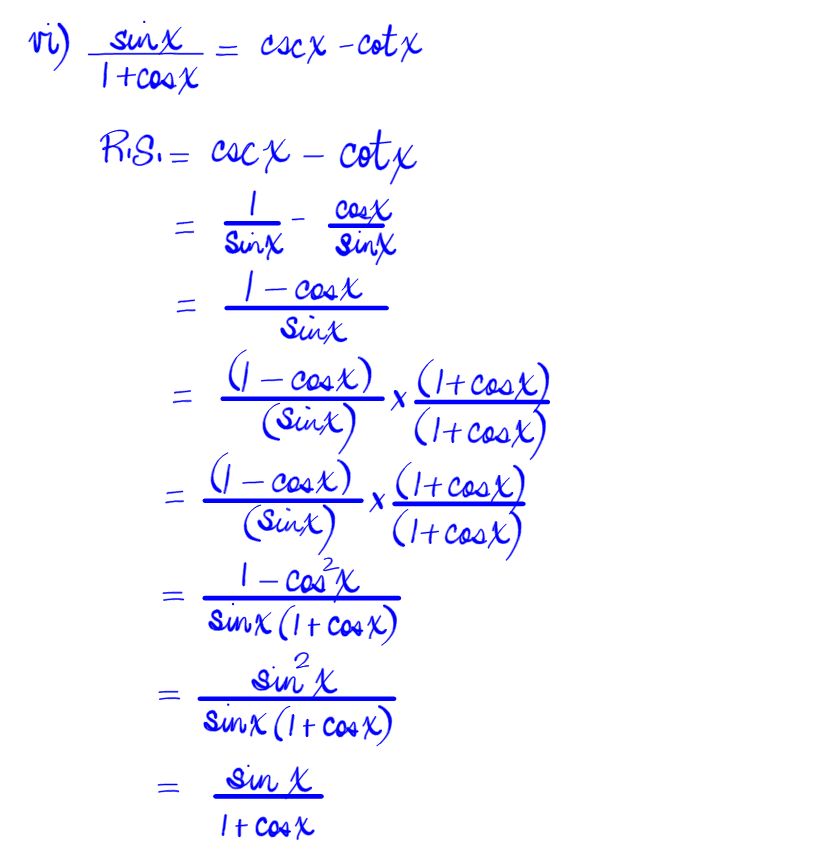 vi) sinx/(1+cosx) = cscx - cotx
R.S. = cscx - cotx
= 1/sinx - cosx/sinx
= (1 - cosx)/sinx
= (1 - cosx)/(sinx) x (1+cosx)/(1+cosx)
= (1 - cosx)/(sinx) x (1+cosx)/(1+cosx)
= (1 - cos²x)/(sinx(1+cosx))
= sin²x/(sinx(1+cosx))
= sinx/(1+cosx)